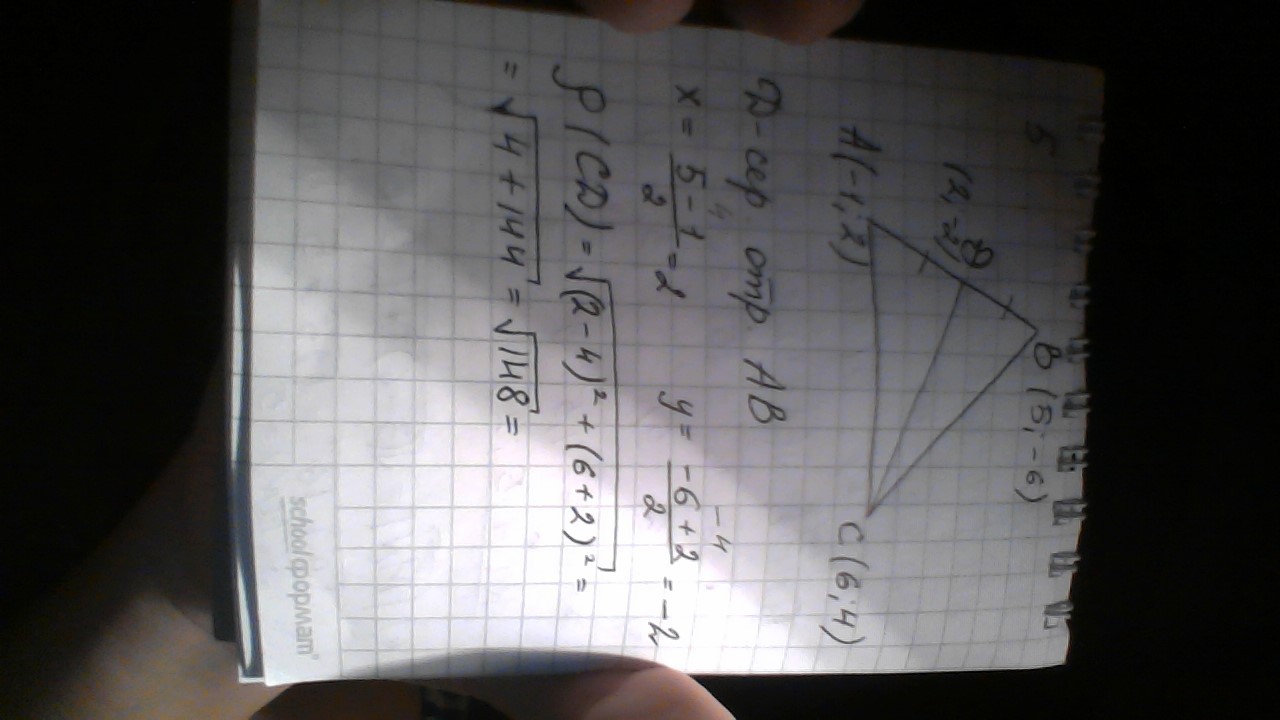 5
B (5; -6)
D
(2; -2)
A(-1; 2)
C (6; 4)
D - сер. отр. AB
x = \frac{5-1}{2} = 2
4
y = \frac{-6+2}{2} = -2
-4
ρ(CD) = √(2-4)² + (6+2)² =
= √4+144 = √148 =
school формат®